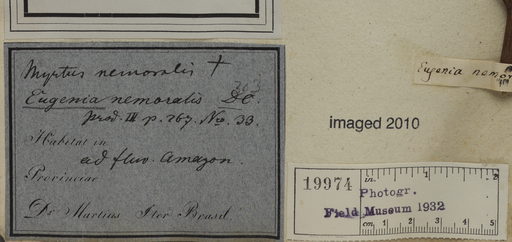 Myrtus nemoralis †
363
Eugenia nemoralis DC.
prod. III p. 267. No. 33.
Habitat in
ad fluv. Amazon.
Provinciae
Dr Martius Iter Brasil
Eugenia nemor
imaged 2010
19974
in. 1 2
Photogr.
Field Museum 1932
cm. 1 2 3 4 5